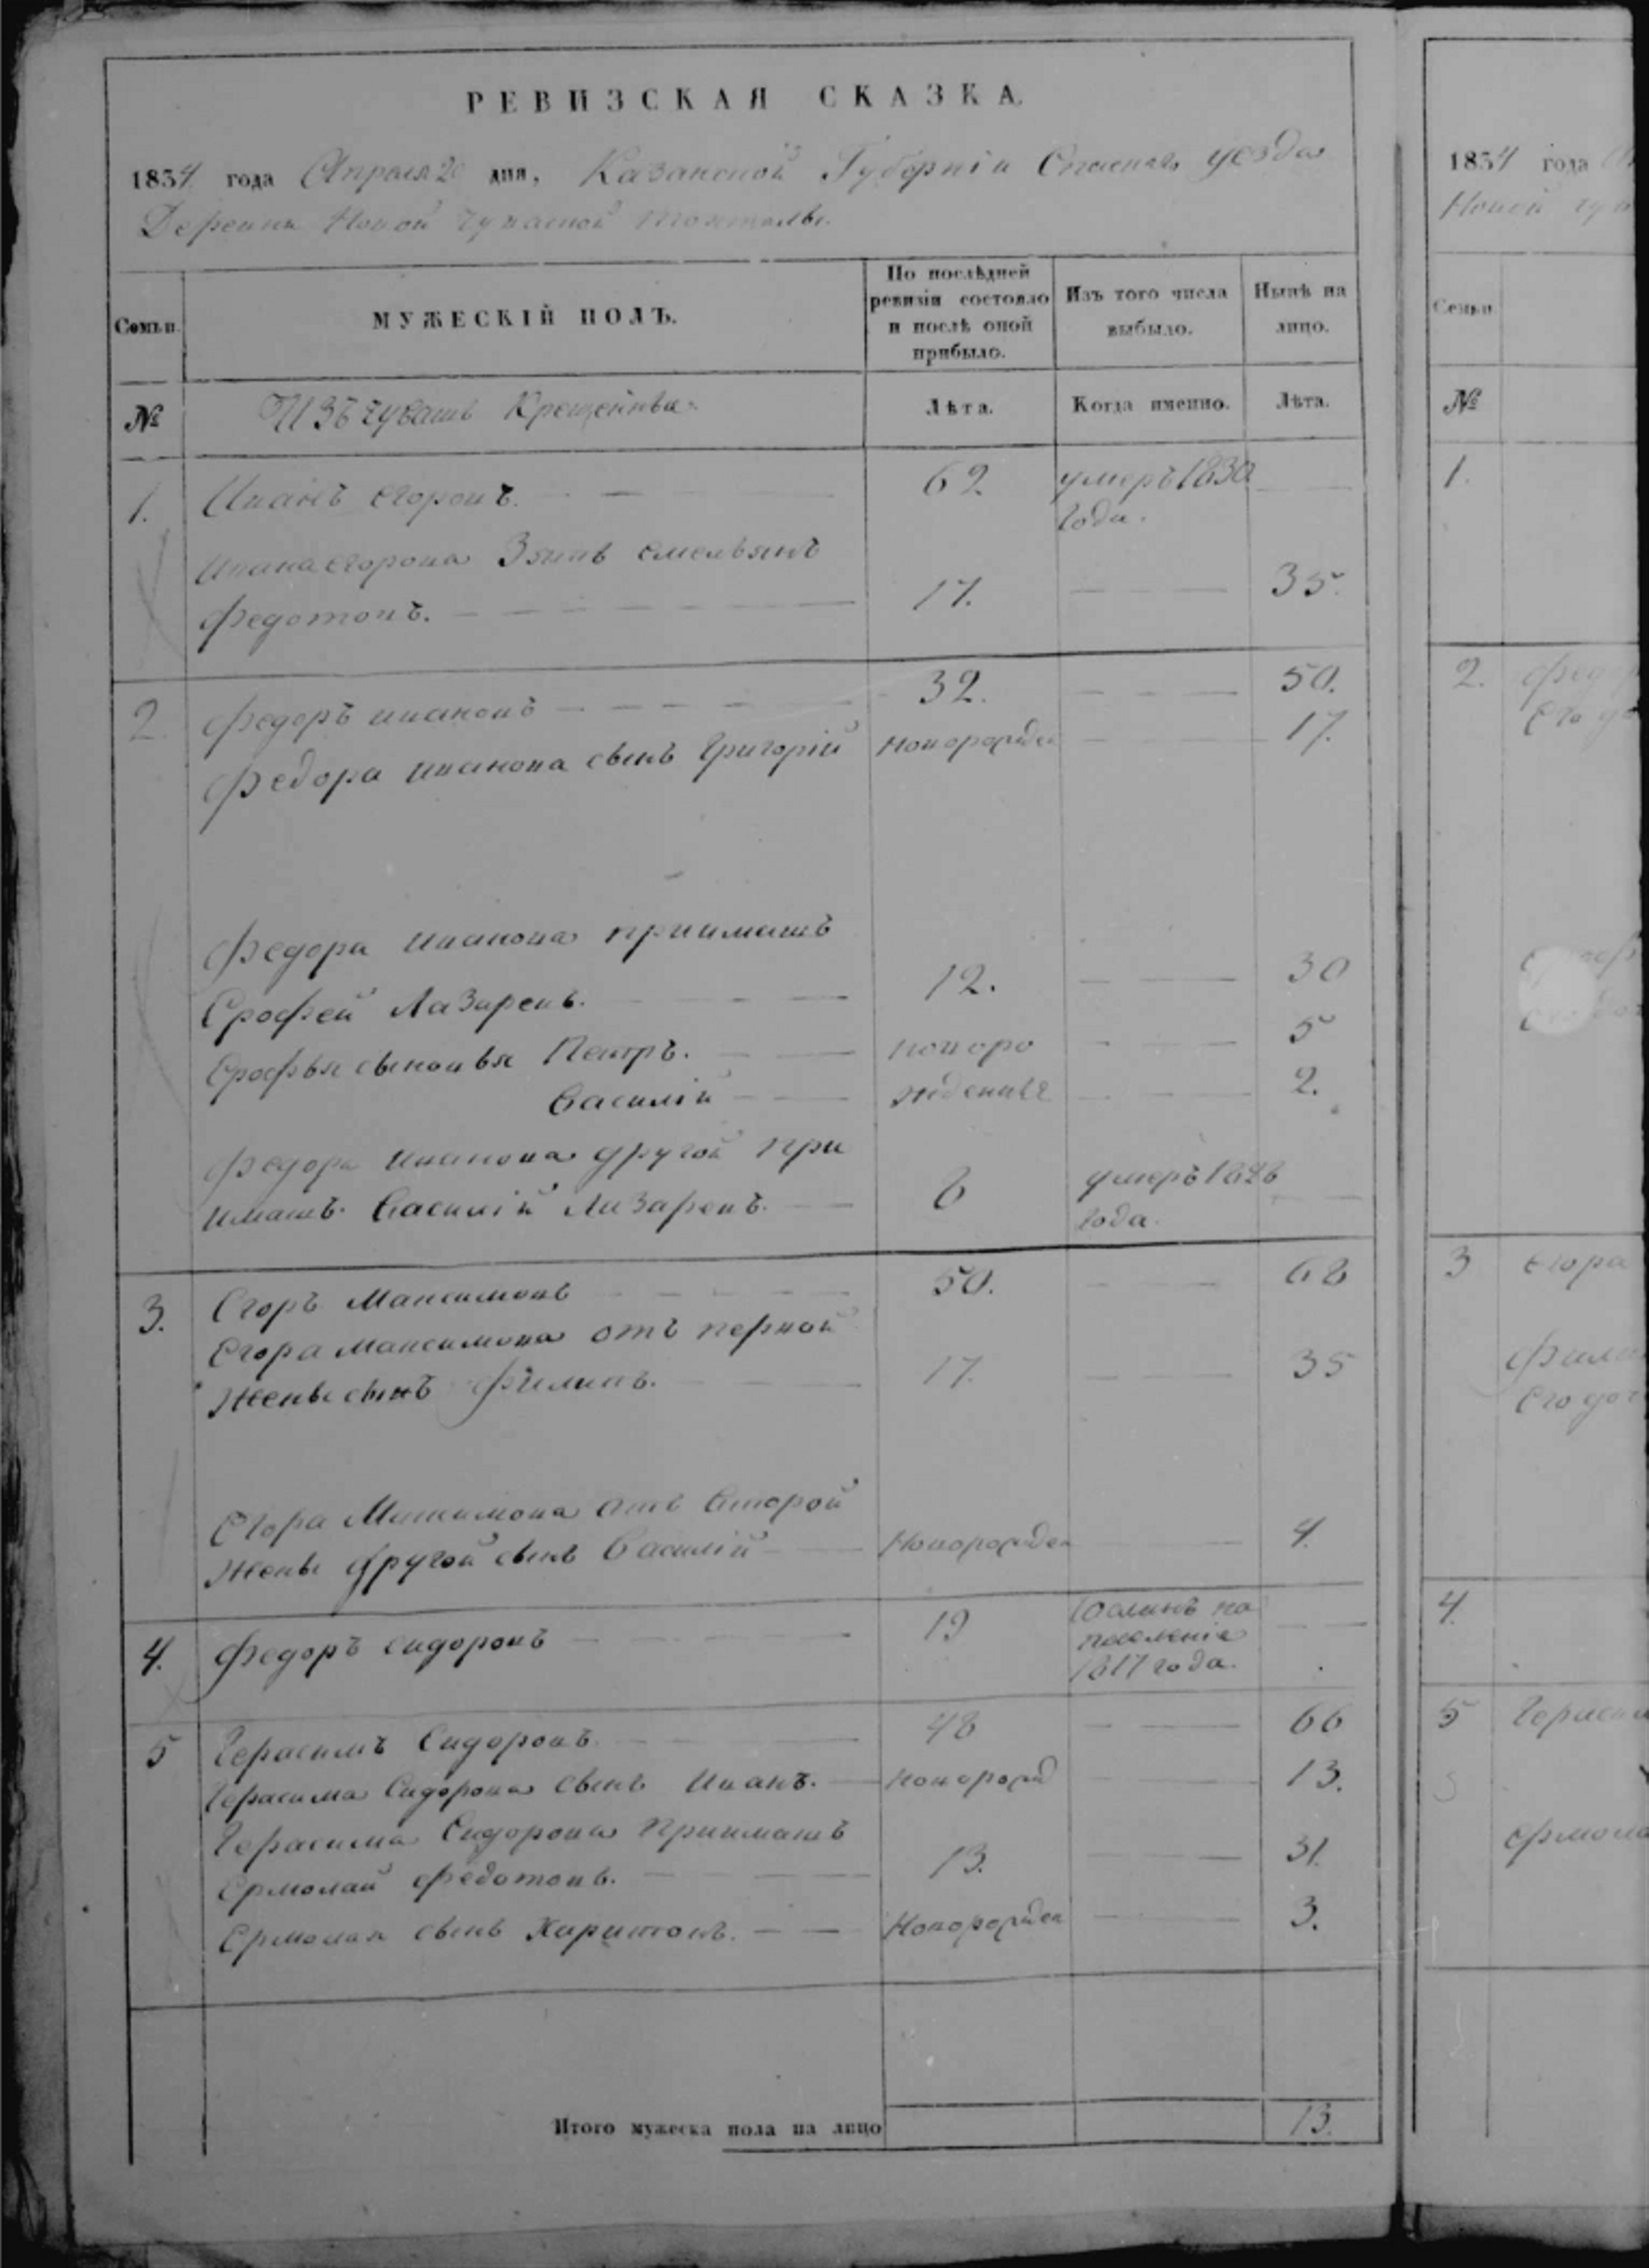 РЕВИЗСКАЯ СКАЗКА.
1834 года Апреля 20 дня, Казанской Губерніи Спаскаго уезда
Деревни Новой чуваской
Семьи. МУЖЕСКІЙ ПОЛЪ. По послѣдней ревизіи состояло и послѣ оной прибыло. Изъ того числа выбыло. Нынѣ на лицо.
№ Изъ чувашъ Крещеныхъ Лѣта. Когда именно. Лѣта.
1. Иванъ егоровъ. 62. умеръ 1830 года.
Ивана егорова Зять емельянъ
Федотовъ. 17. 35.
2. Федоръ ивановъ 32. 50.
Федора иванова сынъ Григорій новорожден 17.
Федора иванова приимашъ
Ерофей Лазаревъ. 12. 30
Ерофея сыновья Петръ. новоро 5
Василій жденные 2.
Федора иванова другой при
имашъ Василій Лазаревъ. 8 умеръ года.
3. Егоръ Максимовъ 50. 68
Егора максимова отъ первой
Жены сынъ Филипъ. 17. 35
Егора Максимова отъ второй
Жены другой сынъ Василій Новорожден 4.
4. Федоръ сидоровъ 19 Сосланъ на поселеніе 1817 года.
5 Герасимъ Сидоровъ 48 66
Герасима Сидорова сынъ Иванъ. Боворожд 13.
Герасима Сидорова Приимашъ
Ермолай Федотовъ. 13. 31.
Ермолая сынъ Харитонъ. Новорожден 3.
Итого мужеска пола на лицо 13.
1834 года
Новой чув
Семьи
№
1.
2. Федор
Его до
3 Егора
Фили
Его доч
4.
5 Гераси
Ермола